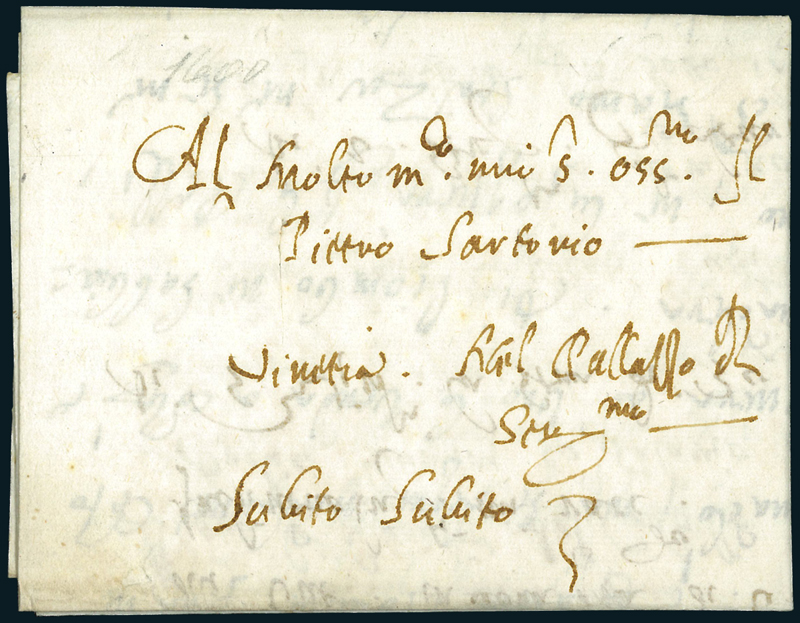 1600
Al Molto m.co mio S. oss.mo Il
Pietro Sartorio
Vinetia. Nel Pallasso
Ser.mo
Subito Subito